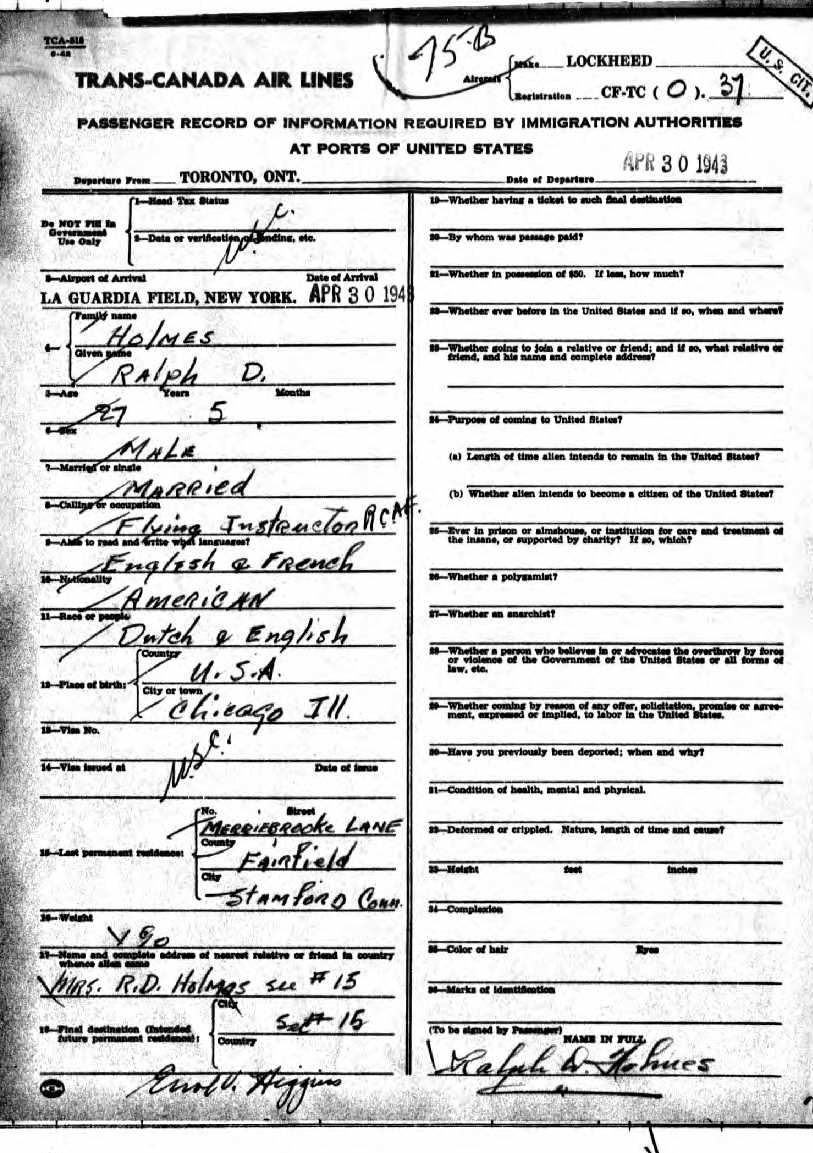 TCA-518
6-42
75-B
U. S. CIT.
TRANS-CANADA AIR LINES
Aircraft
Make LOCKHEED
Registration CF-TC ( O ). 37
PASSENGER RECORD OF INFORMATION REQUIRED BY IMMIGRATION AUTHORITIES
AT PORTS OF UNITED STATES
Departure From TORONTO, ONT. Date of Departure APR 30 1943
Do NOT Fill In
Government
Use Only
1—Head Tax Status
U.S.C.
2—Data or verification of landing, etc.
3—Airport of Arrival Date of Arrival
LA GUARDIA FIELD, NEW YORK. APR 30 194
4—
Family name
HOLMES
Given name
RALPH D.
5—Age Years Months
27 5
6—Sex
MALE
7—Married or single
MARRIED
8—Calling or occupation
Flying Instructor RCAF.
9—Able to read and write what languages?
English & French
10—Nationality
AMERICAN
11—Race or people
Dutch & English
12—Place of birth:
Country
U.S.A.
City or town
Chicago Ill.
13—Visa No.
U.S.C.
14—Visa issued at Date of issue
15—Last permanent residence:
No. Street
MERRIEBROOKE LANE
County
FAIRfield
City
STAMFORD Conn.
16—Weight
190
17—Name and complete address of nearest relative or friend in country
whence alien came
MRS. R.D. Holmes see # 15
18—Final destination (Intended
future permanent residence):
City
See # 15
Country
19—Whether having a ticket to such final destination
20—By whom was passage paid?
21—Whether in possession of $50. If less, how much?
22—Whether ever before in the United States and if so, when and where?
23—Whether going to join a relative or friend; and if so, what relative or
friend, and his name and complete address?
24—Purpose of coming to United States?
(a) Length of time alien intends to remain in the United States?
(b) Whether alien intends to become a citizen of the United States?
25—Ever in prison or almshouse, or institution for care and treatment of
the insane, or supported by charity? If so, which?
26—Whether a polygamist?
27—Whether an anarchist?
28—Whether a person who believes in or advocates the overthrow by force
or violence of the Government of the United States or all forms of
law, etc.
29—Whether coming by reason of any offer, solicitation, promise or agree-
ment, expressed or implied, to labor in the United States.
30—Have you previously been deported; when and why?
31—Condition of health, mental and physical.
32—Deformed or crippled. Nature, length of time and cause?
33—Height feet inches
34—Complexion
35—Color of hair Eyes
36—Marks of identification
(To be signed by Passenger)
NAME IN FULL
Ralph D. Holmes
Errol V. Higgins